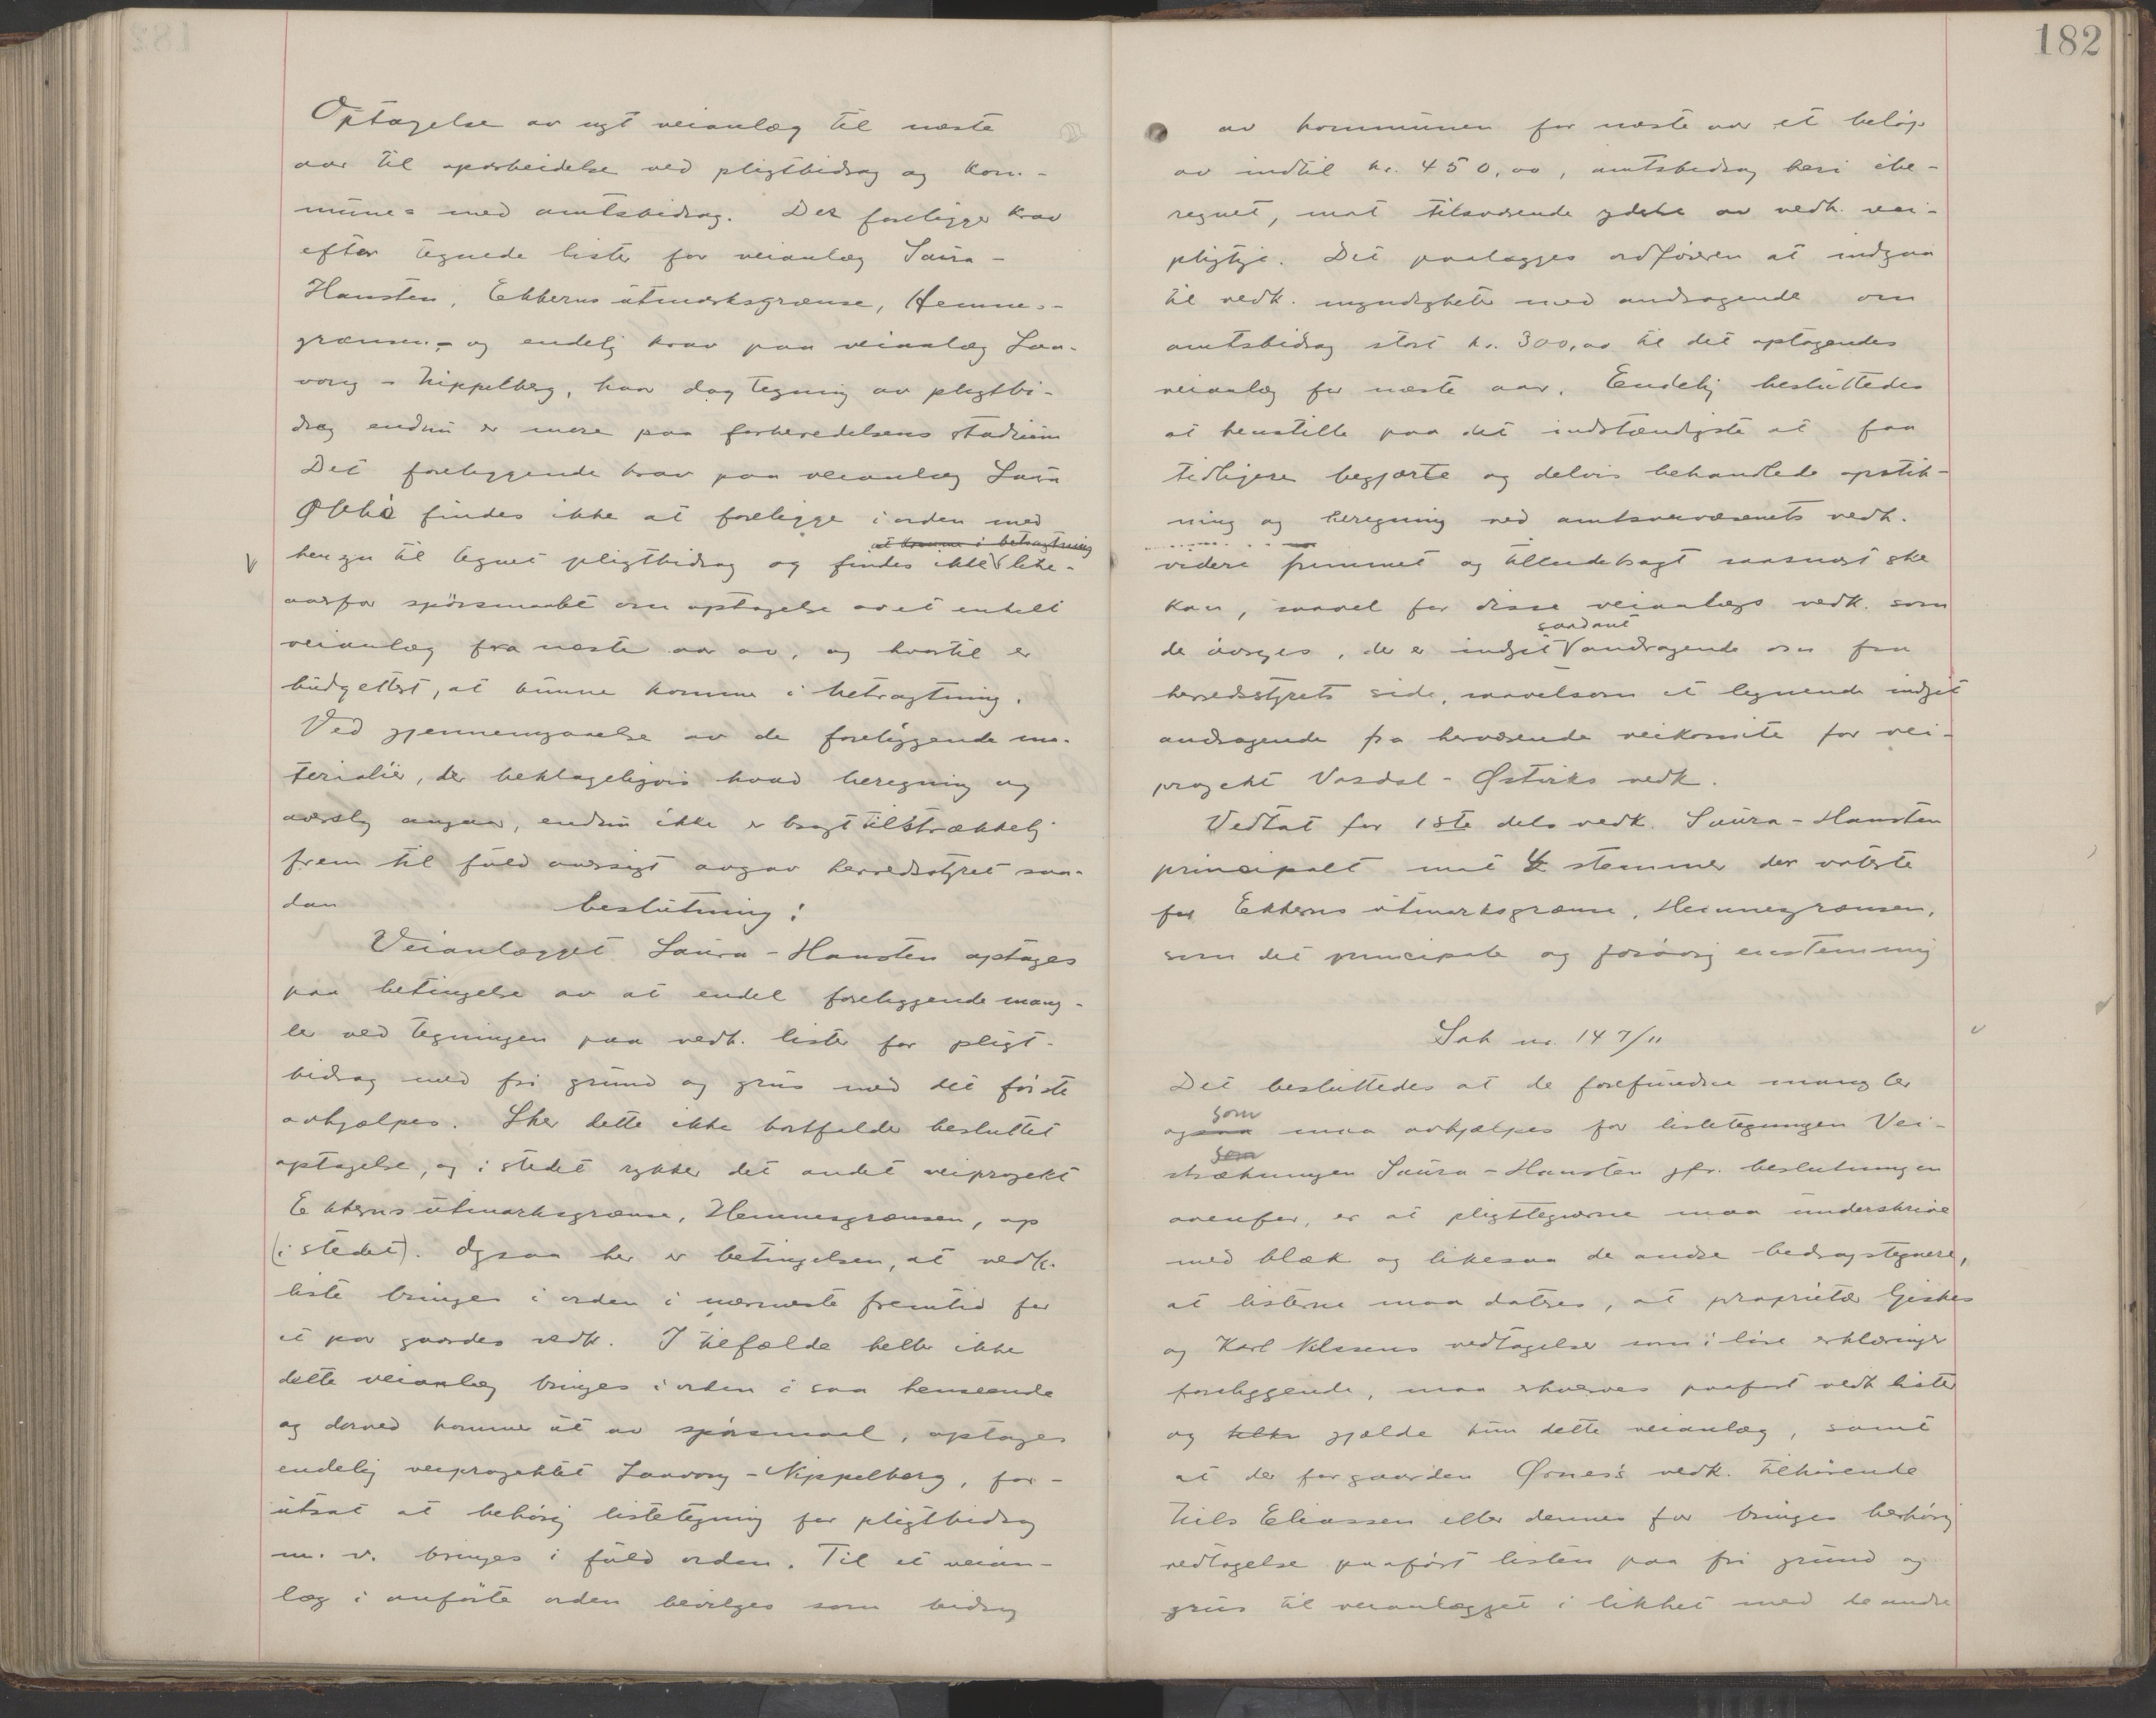 182
Optagelse av nyt veianlæg til næste
aar til oparbeidelse ved pligtbidrag og kom-
mune- med amtsbidrag. Der foreligger krav
efter tegnede lister for veianlæg Saura-
Hansten, Ekkerns utmarksgrænse, Hemnes-
grænsen,- og endelig krav paa veianlæg Laa-
vong - Nippelberg, hvor dog tegning av pligtbi-
drag endnu er mere paa forberedelsens stadium
Det foreliggende krav paa veianlæg Saura
findes ikke at foreligge i orden med
at komme i betragtning
hensyn til tegnet pligtbidrag og findes ikke like-
overfor spørsmaalet om optagelse av et enkelt
veianlæg fra næste aar av, og hvortil er
budgettert, at kunne komme i betragtning.
Ved gjennemgaaelse av de foreliggende ma-
terialier, der beklageligvis hvad beregning og
overslag angaar, endnu ikke er bragt tilstrækkelig
frem til fuld oversigt avgav herredsstyret saa-
dan beslutning:
Veianlægget Saura - Hansten optages
paa betingelse av at endel foreliggende mang-
ler ved tegningen paa vedk. lister for pligt-
bidrag med fri grund og grus med det første
avhjælpes. Sker dette ikke bortfalder besluttet
optagelse, og i stedet rykker det andet veiprojekt
Ekkerns utmarksgrænse, Hemnesgrænsen, op
(i stedet). Ogsaa her er betingelsen, at vedk.
liste bringes i orden i nærmeste fremtid for
et par gaardes vedk. I tilfælde heller ikke
dette veianlæg bringes i orden i saa henseende
og derved kommer ut av spørsmaal, optages
endelig veiprojektet Laavong - Nippelberg, for-
utsat at behørig listetegning for pligtbidrag
m. v. bringes i fuld orden. Til et veian-
læg i anførte orden bevilges som bidrag
182
av kommunen for næste aar et beløp
av indtil kr. 450,00, amtsbidrag heri ibe-
regnet, mot tilsvarende ydelse av vedk. vei-
pligtige. Det paalægges ordføreren at indgaa
til vedk. myndigheter med andragende om
amtsbidrag stort kr. 300,00 til det optagendes
veianlæg for næste aar. Endelig besluttedes
at henstille paa det indstændigste at faa
tidligere begjærte og delvis behandlede opstik-
ning og beregning ved amtsveivæsenets vedk.
videre fremmet og tilendebragt saasnart ske
kan, saavel for disse veianlægs vedk. som
saadant
de øvriges, der er indgit andragende om fra
herredsstyrets side, saavelsom et lignende indgit
andragende fra herværende veikomite for vei-
projekt Vasdal - Østviks vedk.
Vedtat for 1ste dels vedk. Saura - Hansten
principalt mot 4 stemmer der voterte
for Ekkerns utmarksgrænse, Hemnesgrænsen,
som det principale og forøvrig enstemmig
Sak nr. 147/11
Det besluttedes at de forefundne mangler
som
ogsaa maa avhjælpes for listetegningen Vei-
som
strækningen Saura - Hansten jfr. beslutningen
ovenfor, er at pligttegnerne maa underskrive
med blæk og likesaa de andre bidragstegnere,
at listerne maa dateres, at proprietær Geskes
og Karl Nilssens vedtagelser som i løse erklæringer
foreliggende, maa erhverves paaført vedk lister
og gjælde kun dette veianlæg, samt
at der for gaarden Ørnes's vedk. tilhørende
Nils Eliassen eller dennes far bringes behørig
vedtagelse paaført listen paa fri grund og
grus til veianlægget i likhet med de andre